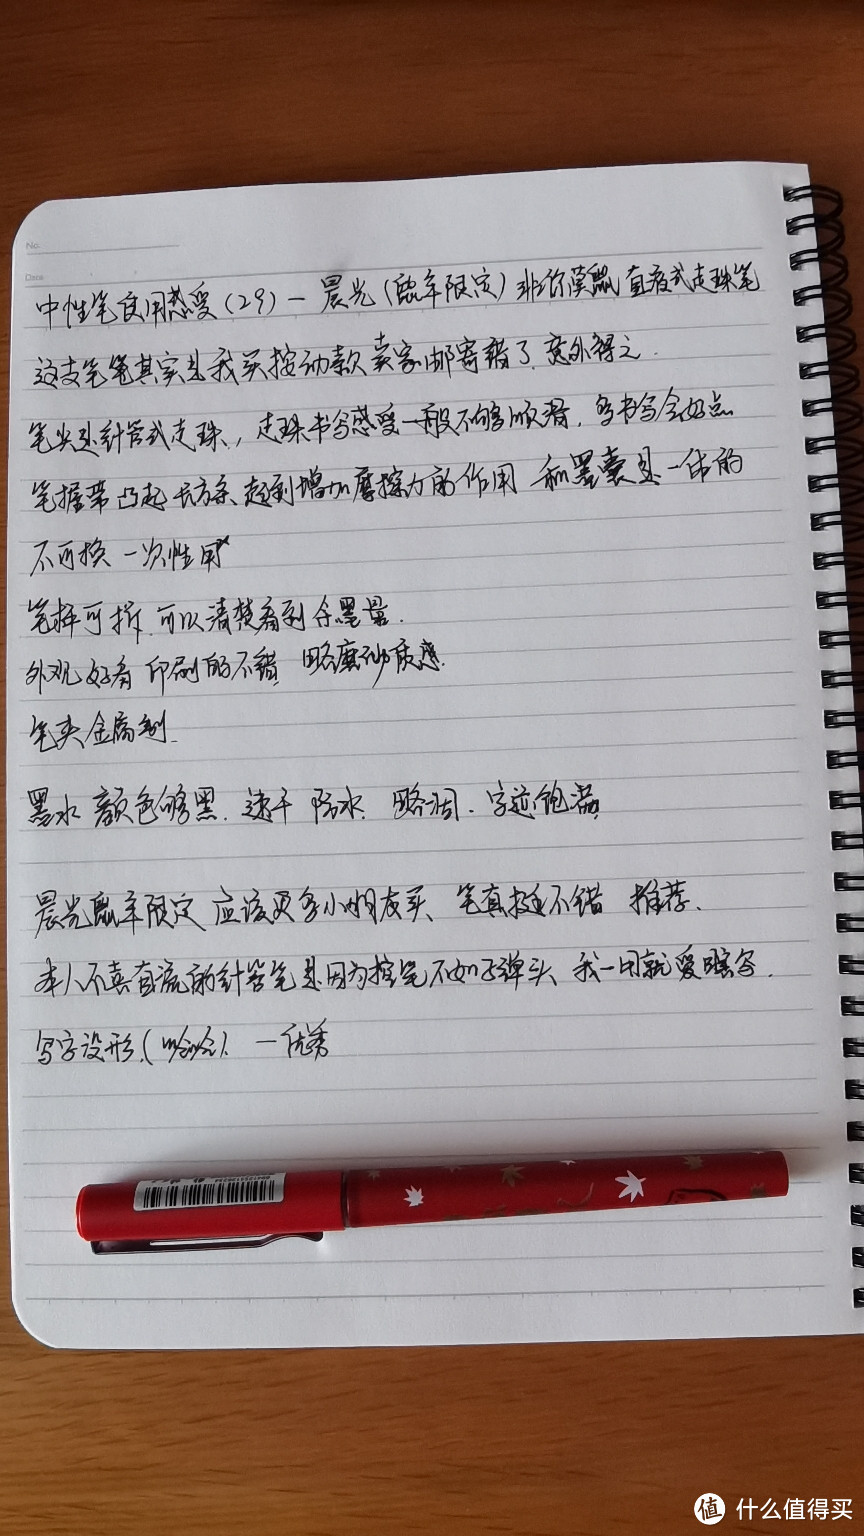 No.
Date
中性笔使用感受(29)一 晨光(鼠年限定)非你莫鼠 直液式走珠笔
这支笔笔其实是我买按动款卖家邮寄错了、意外得之.
笔尖是针管式走珠, 走珠书写感受一般不够顺滑, 多书写会好点
笔握带凸起长方条、起到增加摩擦力的作用 和墨囊是一体的
不可换 一次性用
笔杆可拆.可以清楚看到余墨量.
外观好看 印刷的不错 略磨砂质感.
笔夹金属制.
墨水 颜色够黑. 速干 防水. 略洇. 字迹饱满
晨光鼠年限定 应该更多小朋友买、笔真挺不错 推荐、
本人不喜直流的针管笔是因为控笔不如子弹头、我一用就爱瞎写.
写字没形.(哈哈). 一优秀
值 什么值得买